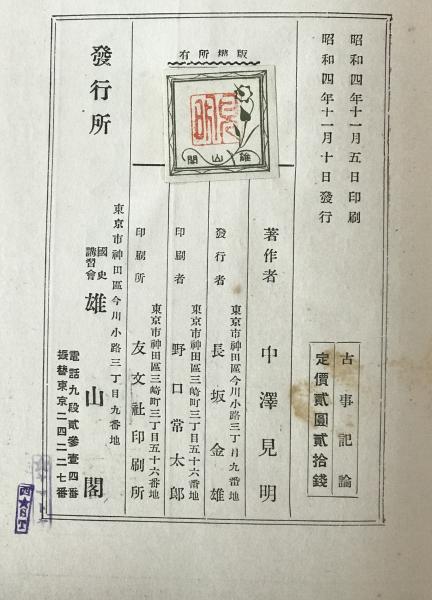 昭和四年十一月五日印刷
昭和四年十一月十日發行
古事記論
定價貳圓貳拾錢
版權所有
雄山閣
著作者 中澤見明
東京市神田區今川小路三丁目九番地
發行者 長坂金雄
東京市神田區三崎町三丁目五十六番地
印刷者 野口常太郎
東京市神田區三崎町三丁目五十六番地
印刷所 友文社印刷所
東京市神田區今川小路三丁目九番地
發行所 國史講習會 雄山閣
電話九段貳參壹四番
振替東京二四二二七番